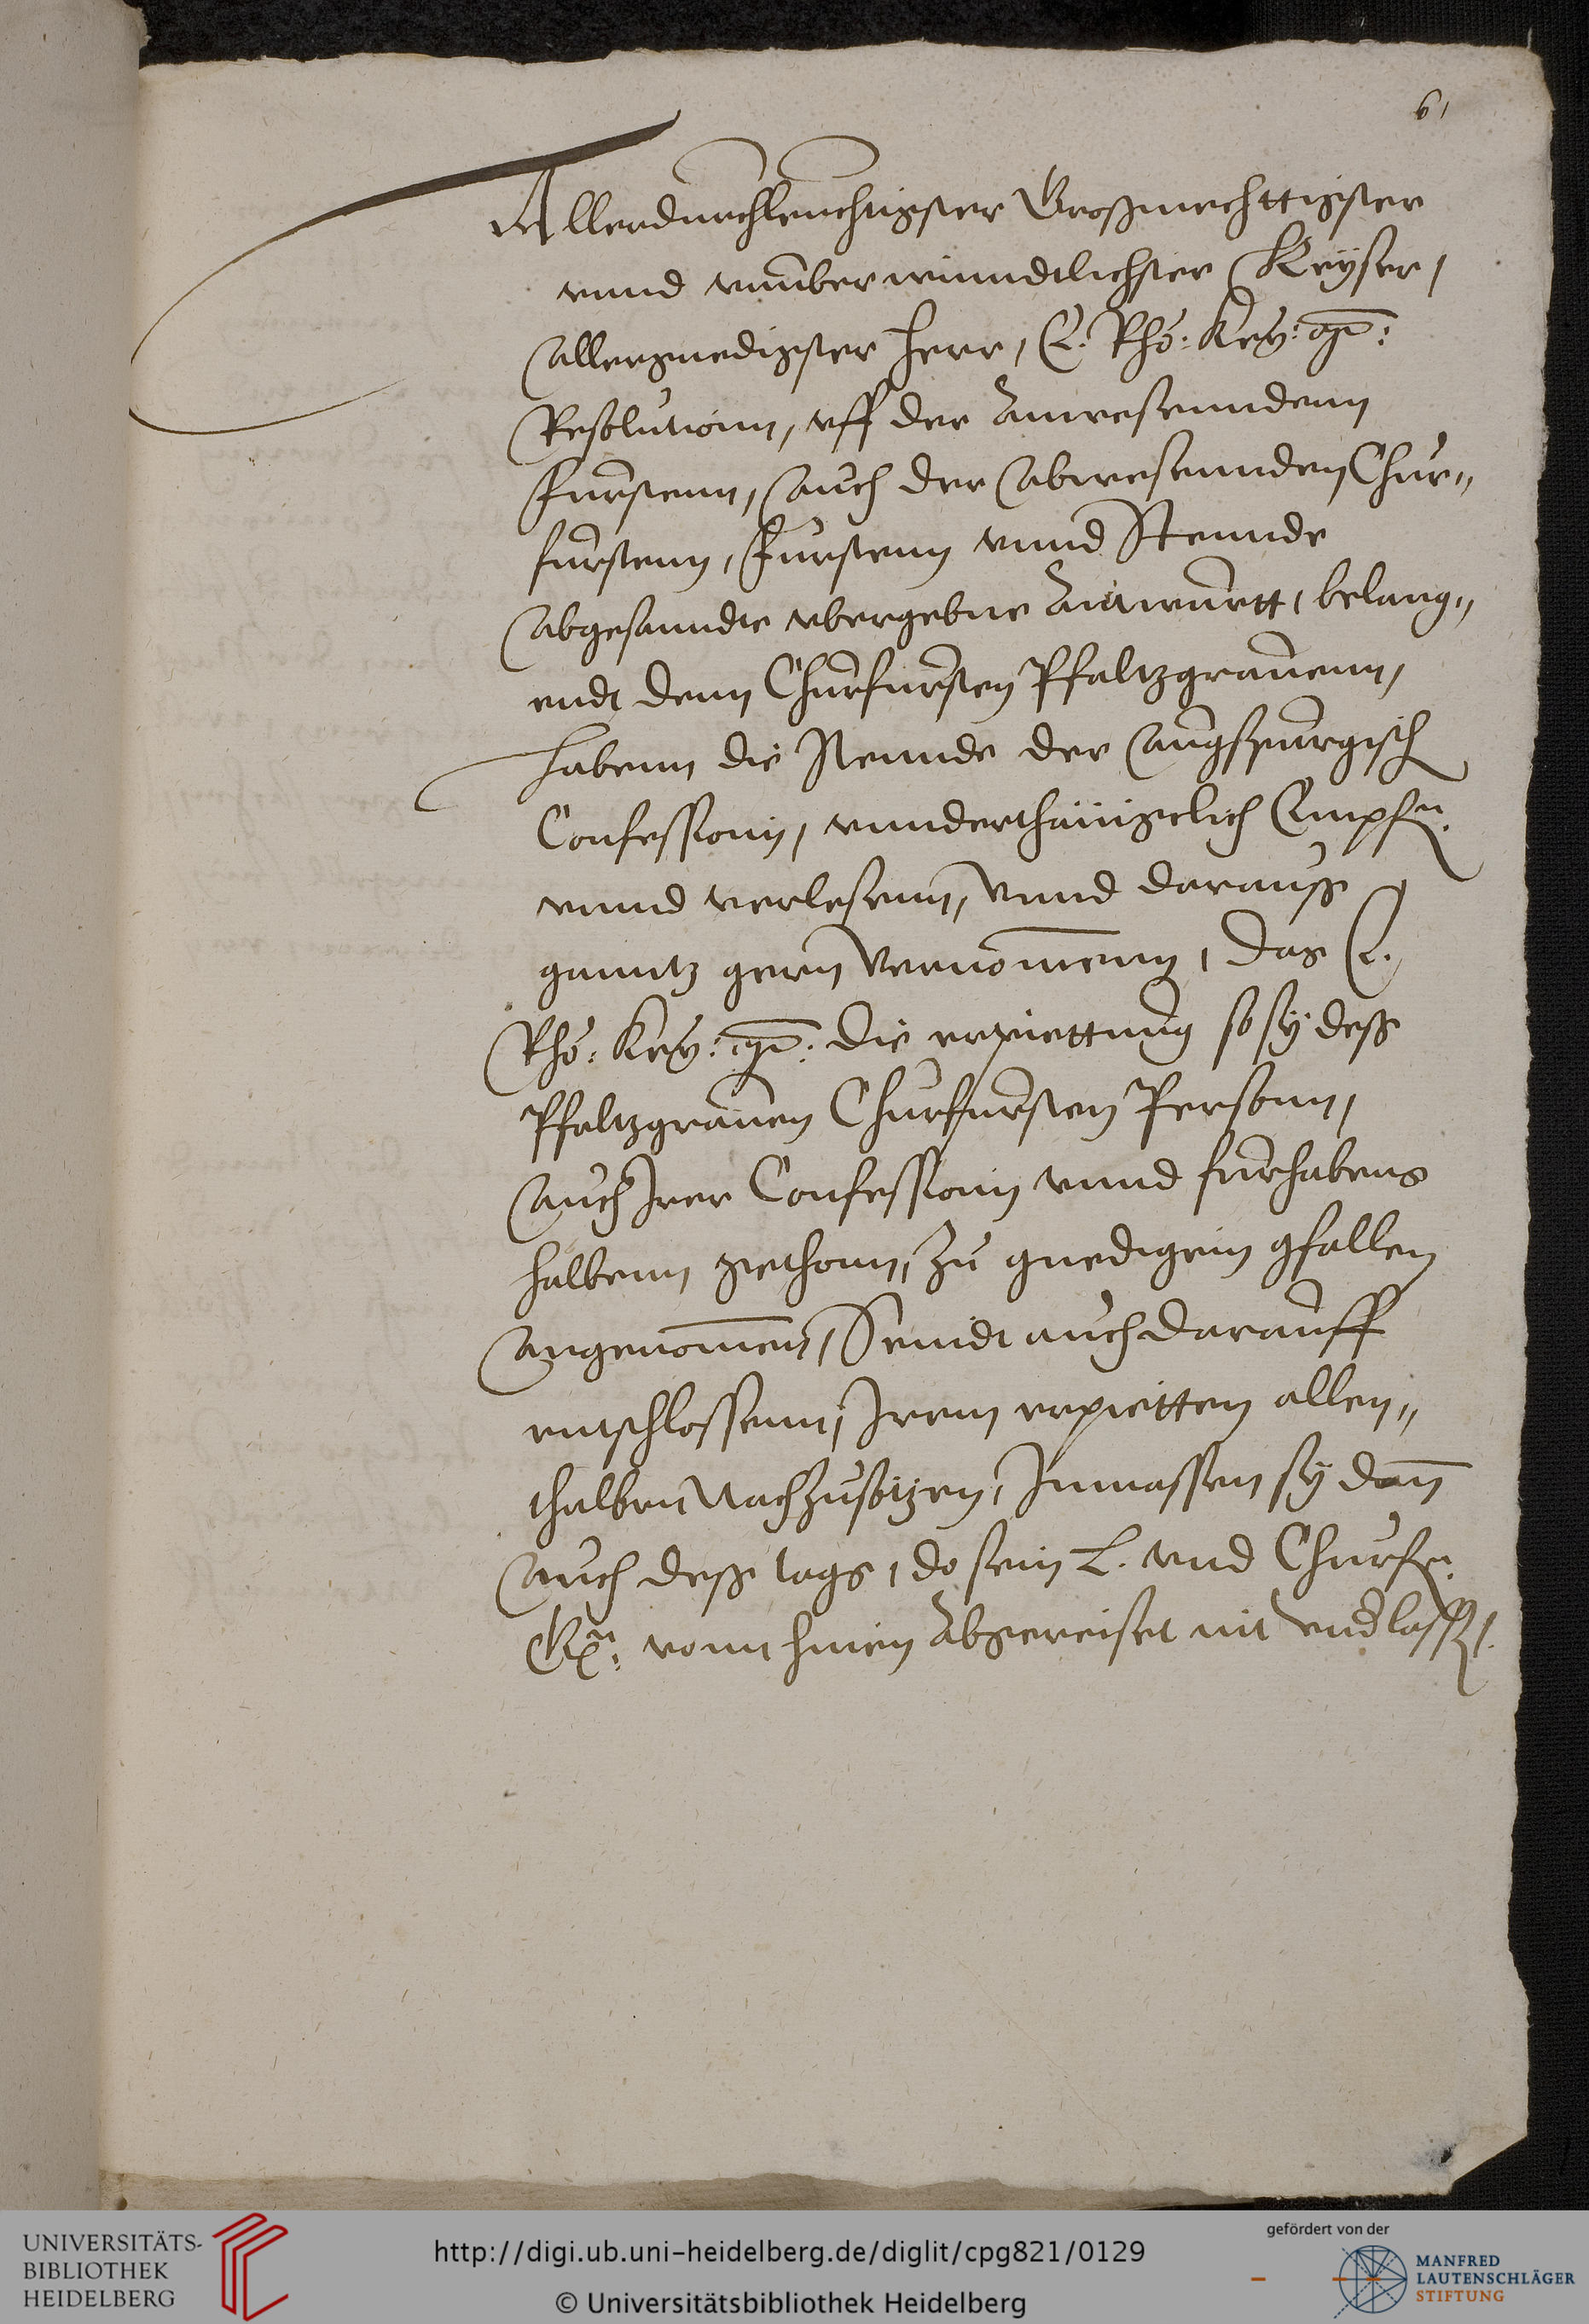 61
Allerdurchleuchtigster Großmechttigster
vnnd vnnüberwinndtlichster Keyser,
allergnedigster Herr, E. Rhö: Key: Mt:
Resolutionn, vff der Anwesenndenn
Fürstenn, auch der abwesennden Chur„
fürstenn, Fürstenn vnnd Stennde
abgesanndte vbergebne Anntwurtt, belang„
endt denn Churfürsten Pfaltzgrauenn,
habenn die Stennde der Augspurgisch
Confessionn, vnnderthänigclich Empf:
vnnd verlesenn, Vnnd darauß
ganntz gern Vernomenn, das E.
Rhö: Key: Mt: die erpiettung so sy deß
Pfaltzgrauen Churfürsten Personn,
auch Irer Confessionn vnnd fürhabens
halbenn gethonn, zu gnedigem gfallen
angenomen, Seindt auch darauff
entschlossenn, Irem erpietten allen„
thalben Nachzusetzen, Inmassen sy dann
auch deß tags, do sein L. vnd Churf:
Gn: vonn hinnen Abgereiset nit vnd lass.
UNIVERSITÄTS-
BIBLIOTHEK
HEIDELBERG
http://digi.ub.uni-heidelberg.de/diglit/cpg821/0129
© Universitätsbibliothek Heidelberg
gefördert von der
MANFRED
LAUTENSCHLÄGER
STIFTUNG